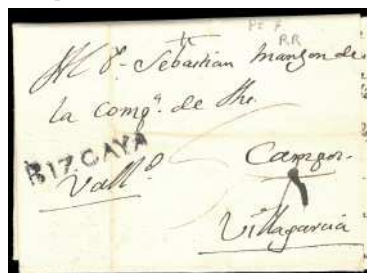 PE F
RR
Al P. Sebastian Manzon de
la Compª. de Jhs.
BIZCAYA
Campos.
Valld.
Villagarcia